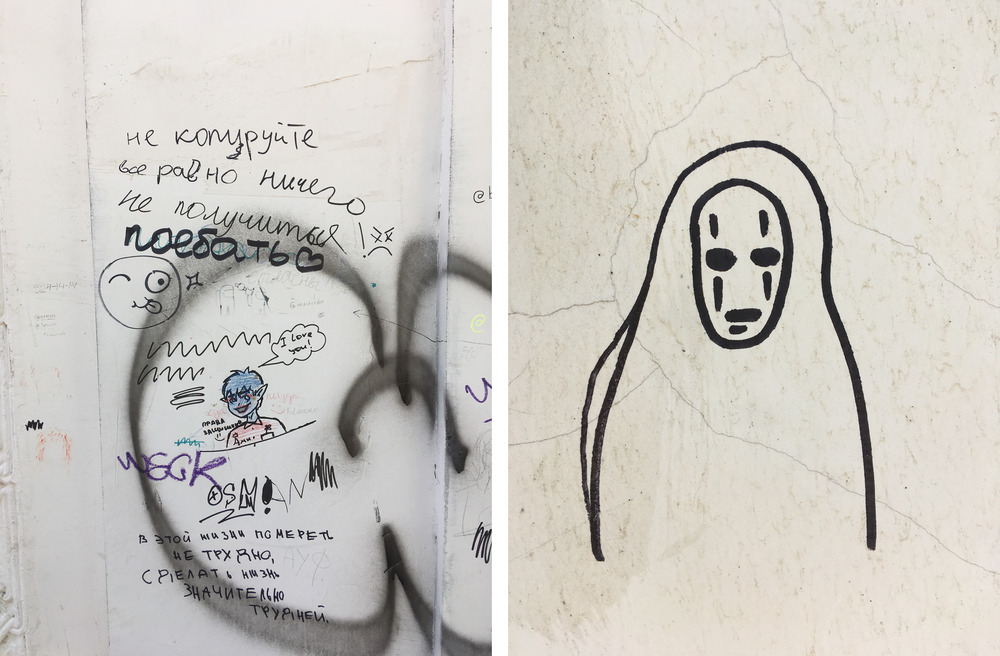 не копируйте
все равно ничего
не получиться!
поебать
I love
you!
права
защищены
WECK
OSMAN
В ЭТОЙ ЖИЗНИ ПОМЕРЕТЬ
НЕ ТРУДНО,
СДЕЛАТЬ ЖИЗНЬ
ЗНАЧИТЕЛЬНО
ТРУДНЕЙ.